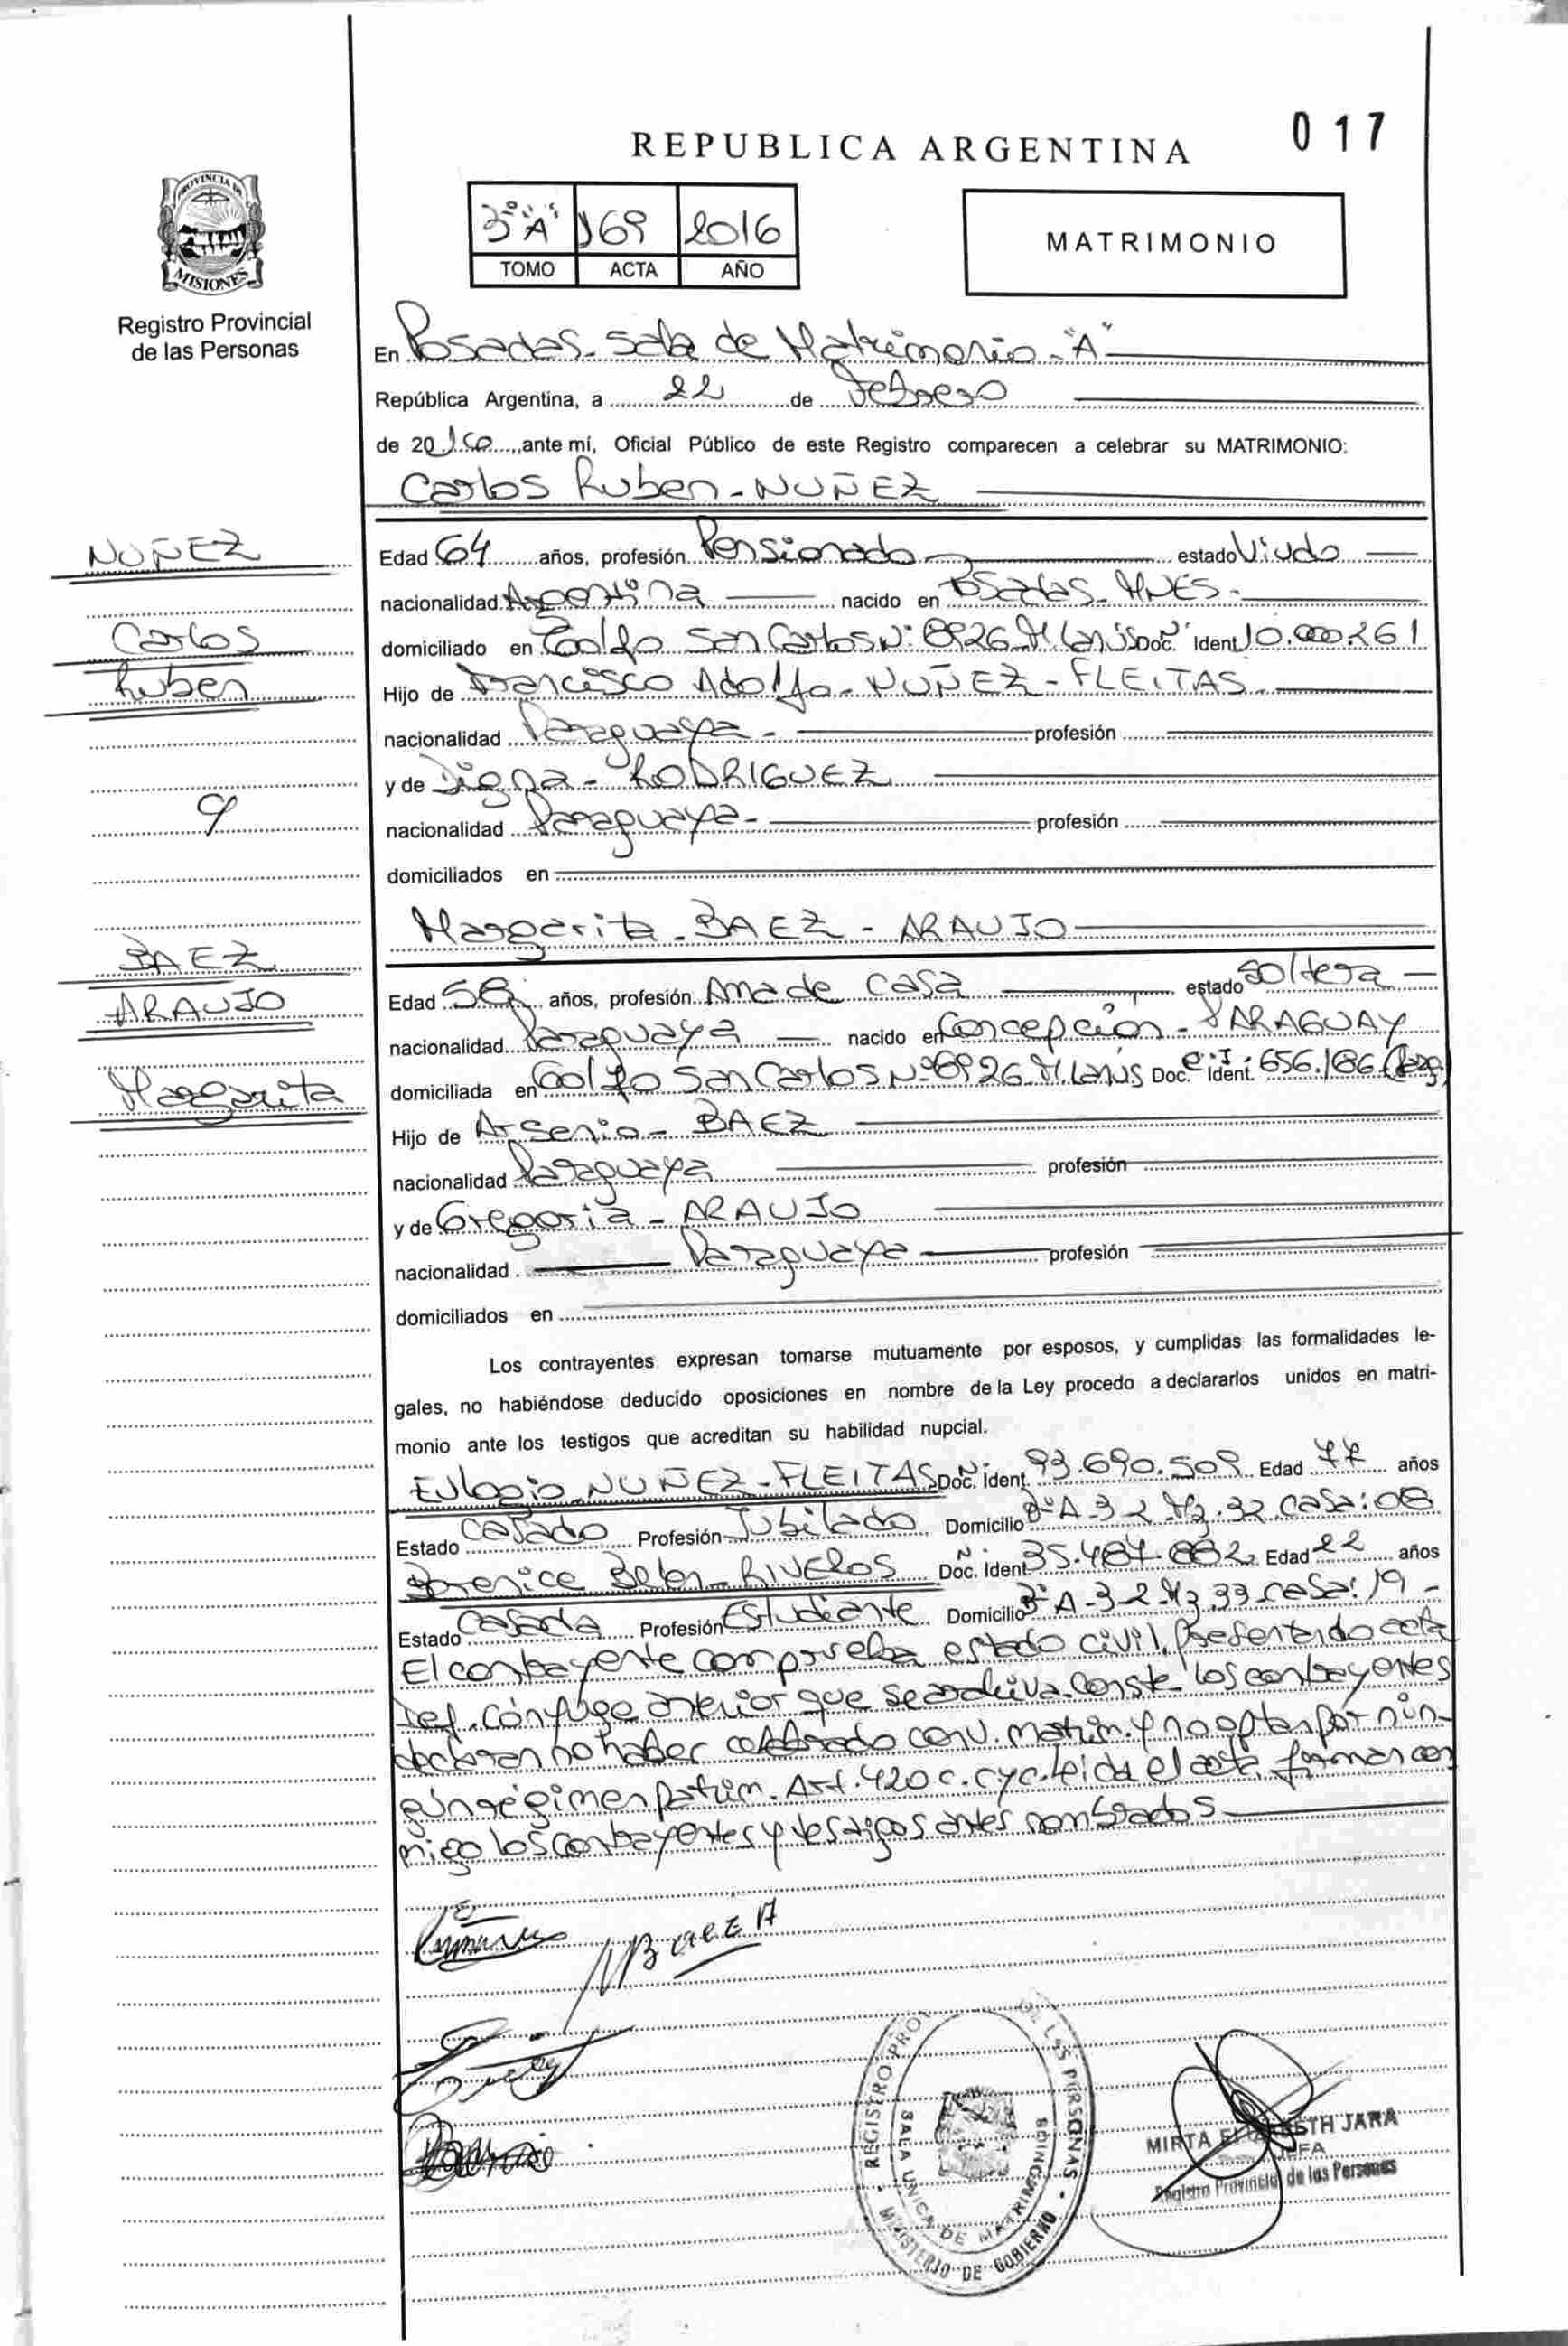 017
REPUBLICA ARGENTINA
PROVINCIA DE
MISIONES
Registro Provincial
de las Personas
3º "A" 169 2016
TOMO ACTA AÑO
MATRIMONIO
En Posadas - Sala de Matrimonio - "A"
República Argentina, a 22 de Febrero
de 2016, ante mí, Oficial Público de este Registro comparecen a celebrar su MATRIMONIO:
Carlos Ruben - NUÑEZ
NUÑEZ
Carlos
Ruben
Edad 64 años, profesión Pensionado estado Viudo
nacionalidad Argentina nacido en Posadas - MNES -
domiciliado en Golfo San Carlos Nº 8926 V. Lanús Doc. Ident. 10.000.261
Hijo de Francisco Adolfo - NUÑEZ - FLEITAS -
nacionalidad Paraguaya - profesión
y de Digna - RODRIGUEZ
y
nacionalidad Paraguaya - profesión
domiciliados en
Margarita - BAEZ - ARAUJO
BAEZ
ARAUJO
Margarita
Edad 58 años, profesión Ama de Casa estado Soltera
nacionalidad Paraguaya nacido en Concepción - PARAGUAY
domiciliada en Golfo San Carlos Nº 8926 V. Lanús Doc. C.I. Ident. 656.186
Hijo de Arsenio - BAEZ
nacionalidad Paraguaya profesión
y de Gregoria - ARAUJO
nacionalidad Paraguaya profesión
domiciliados en
Los contrayentes expresan tomarse mutuamente por esposos, y cumplidas las formalidades le-
gales, no habiéndose deducido oposiciones en nombre de la Ley procedo a declararlos unidos en matri-
monio ante los testigos que acreditan su habilidad nupcial.
Eulogio NUÑEZ - FLEITAS Doc. Nº Ident. 93.690.509 Edad 77 años
Estado Casado Profesión Jubilado Domicilio A-3-2 Mz. 32 Casa: 08
Berenice Belen - RIVEROS Doc. Nº Ident. 35.487.882 Edad 22 años
Estado Casada Profesión Estudiante Domicilio A-3-2 Mz 33 casa: 19 -
El contrayente comprueba estado civil, presentando acta
def. cónyuge anterior que se archiva. Conste: los contrayentes
declaran no haber celebrado conv. matrim. y no optan por nin-
gún régimen patrim. Art. 420 c. cyc. leida el acta, firman con
migo los contrayentes y testigos antes nombrados
MBaez A
REGISTRO PROV DE LAS PERSONAS
SALA UNICA DE MATRIMONIOS
MINISTERIO DE GOBIERNO
MIRTA ELIZABETH JARA
JEFA
Registro Provincial de las Personas